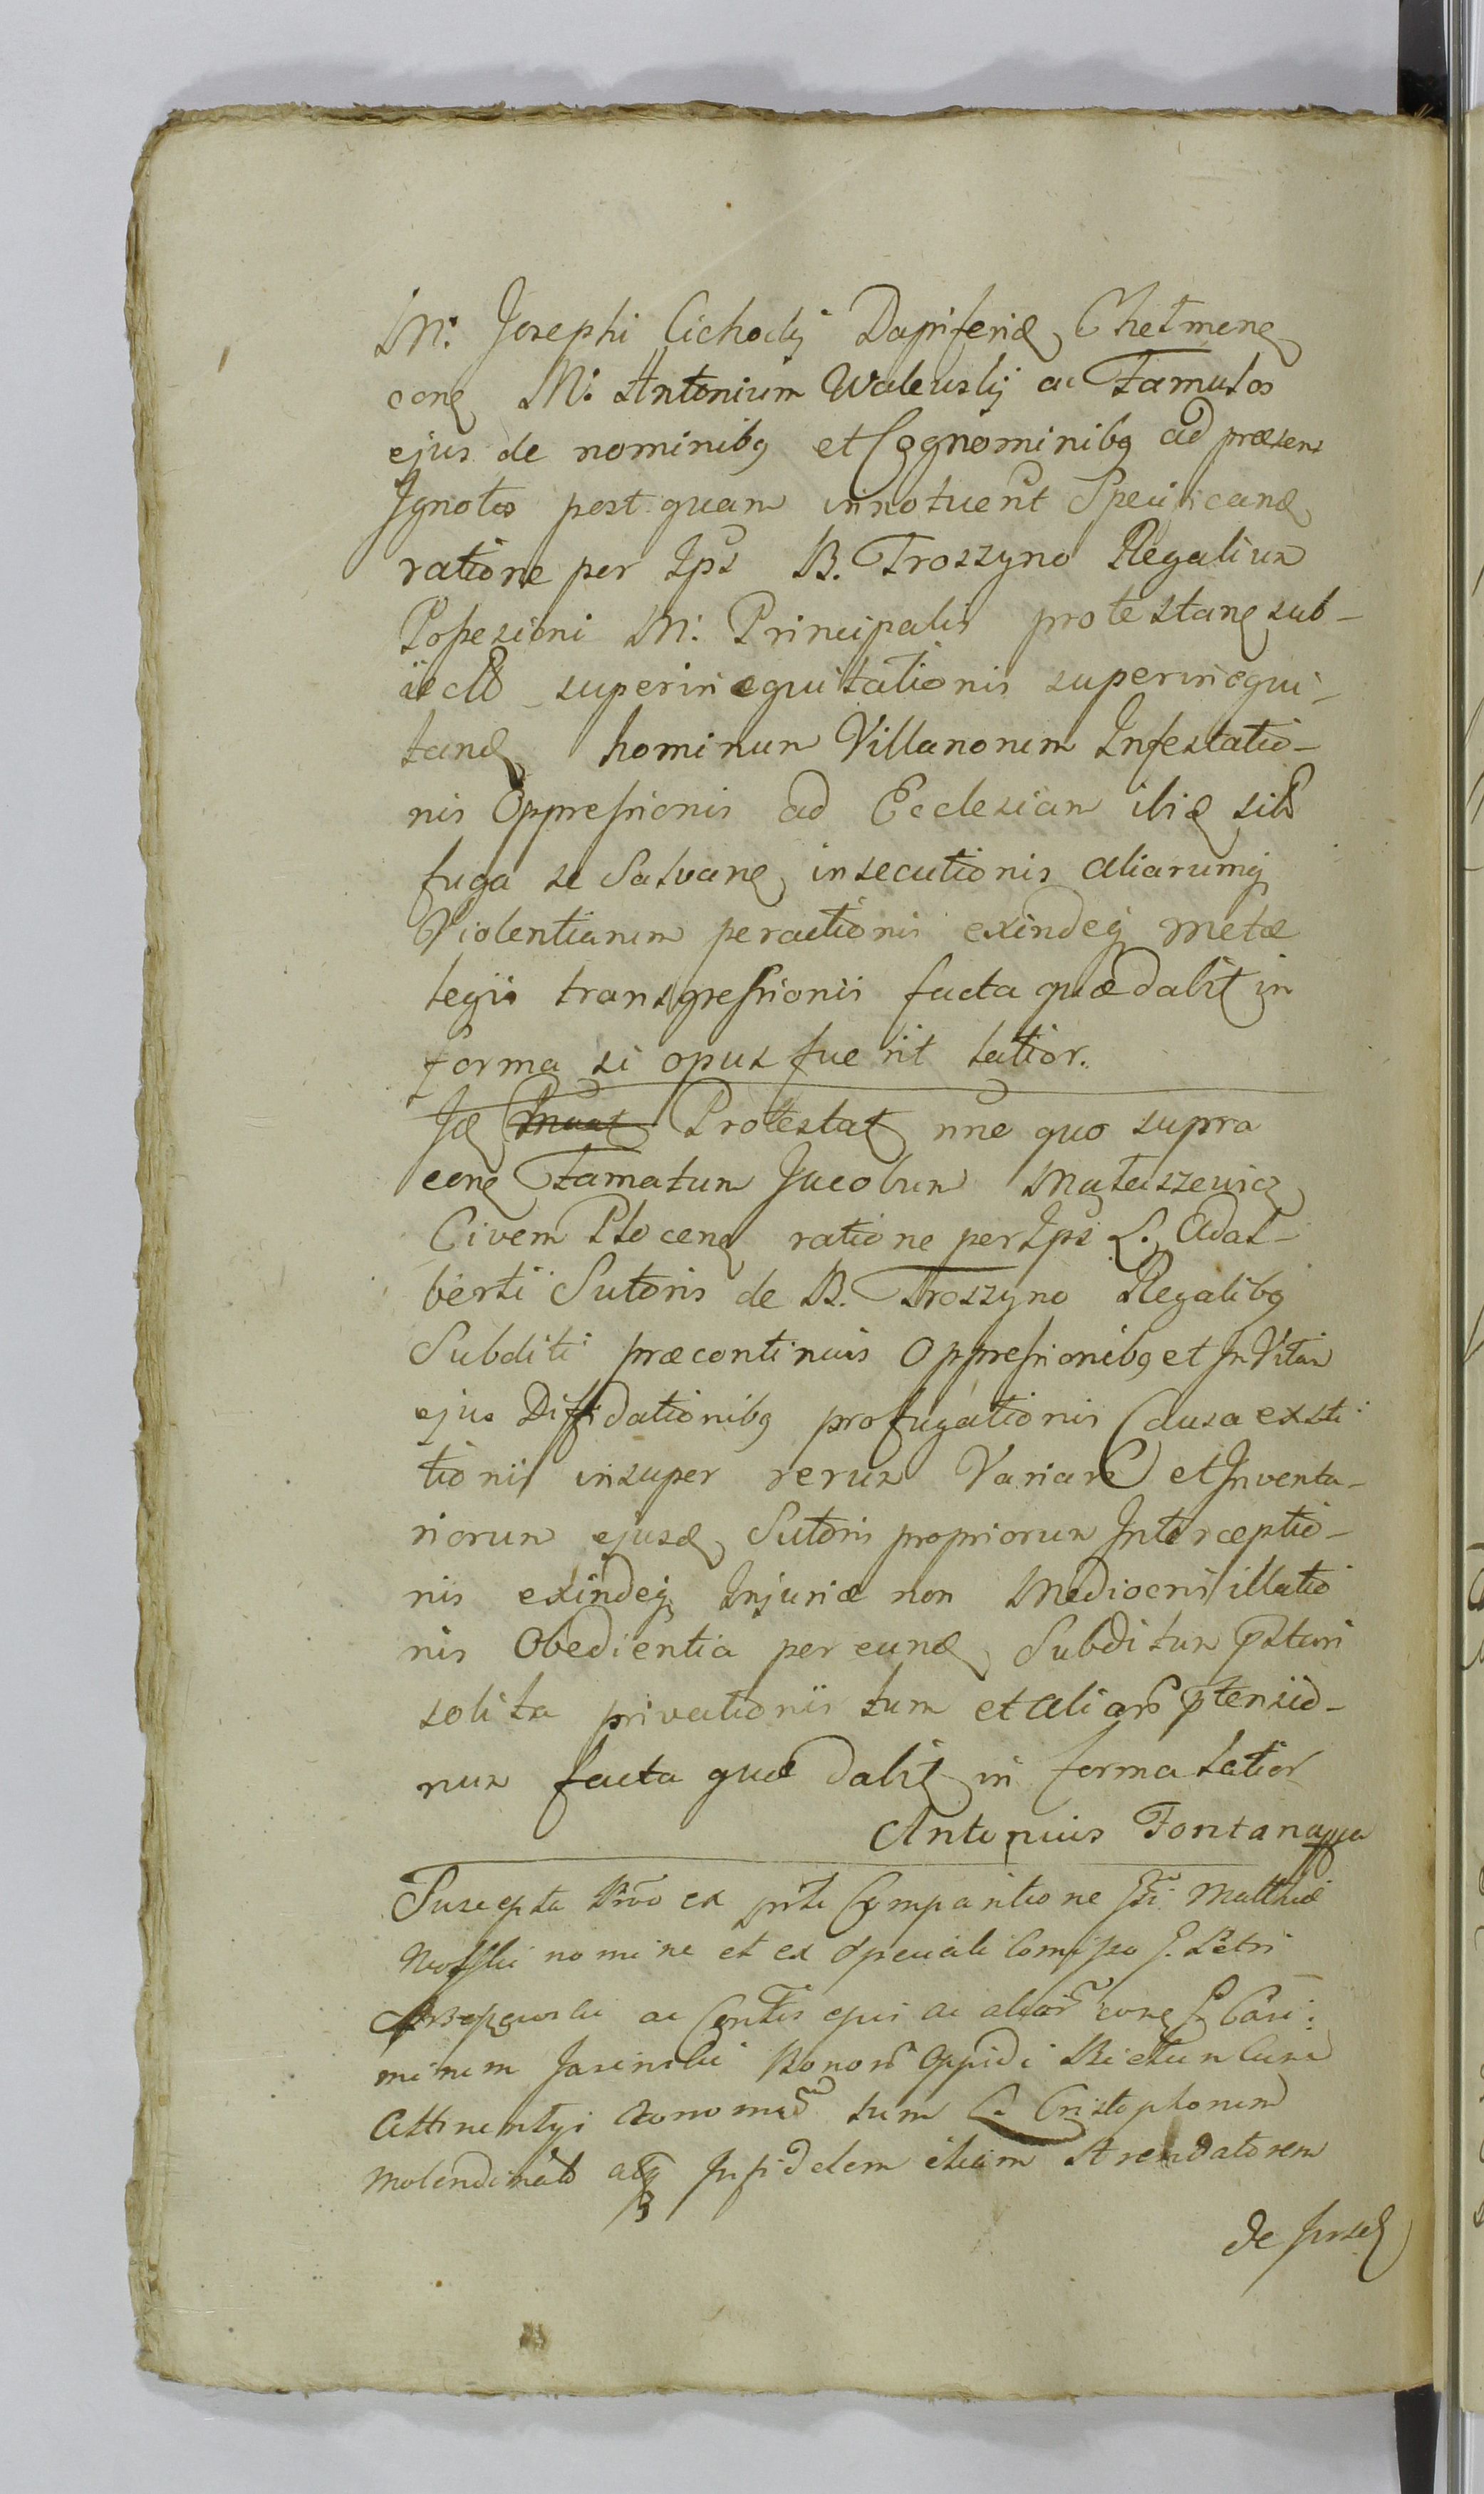 M. Josephi Cichocki Dapiferid Chelmeng
cong M. Antonium Walewskij ac Famulos
ejus de nominibq et Cognominibq ad præsens
Ignotos post quam innotuert Specificand
ratione per Ips B. Troszyno Regalium
Possesioni M. Principalis protestang sub-
iectis superinequitationis superinequi-
tand hominum Villanorum Infestatio-
nis Oppressionis ad Ecclesiam ibid sitt
fuga se Salvang insecutionis aliarumq
Violentiarum peractionis exindeq metæ
legis transgressionis facta quæ dabit in
forma si opus fuerit latior.
Id Protestat nne quo supra
cong Famatum Jacobum Mateszewicz
Civem Ploceng ratione per Ips L. Adal-
berti Sutoris de B. Troszyno Regalibq
Subditi præcontinuis Oppressionibq et In Vitam
ejus Diffidationibq profugationis Causa exsti-
tionis insuper rerum Variar et Inventa-
riorum ejusd Sutoris propriorum Interceptio-
nis exindeq Injuriæ non Mediocris illatio
nis Obedientia per eund Subditum pstari
solita privationis tum et aliar ptensio-
num facta quæ dabit in forma latior
Antonius Fontana
Suscepta ex prti Comparitione Matthiæ
nomine et ex Speciali Comisso G. Petri
ac Contis ejus ac alior cong G. Casi:
mirum Jasinski Bonor Oppidi
Attinentys tum L. Cristophorum
Molendinat atq Infidelem etiam Arendatorem
de